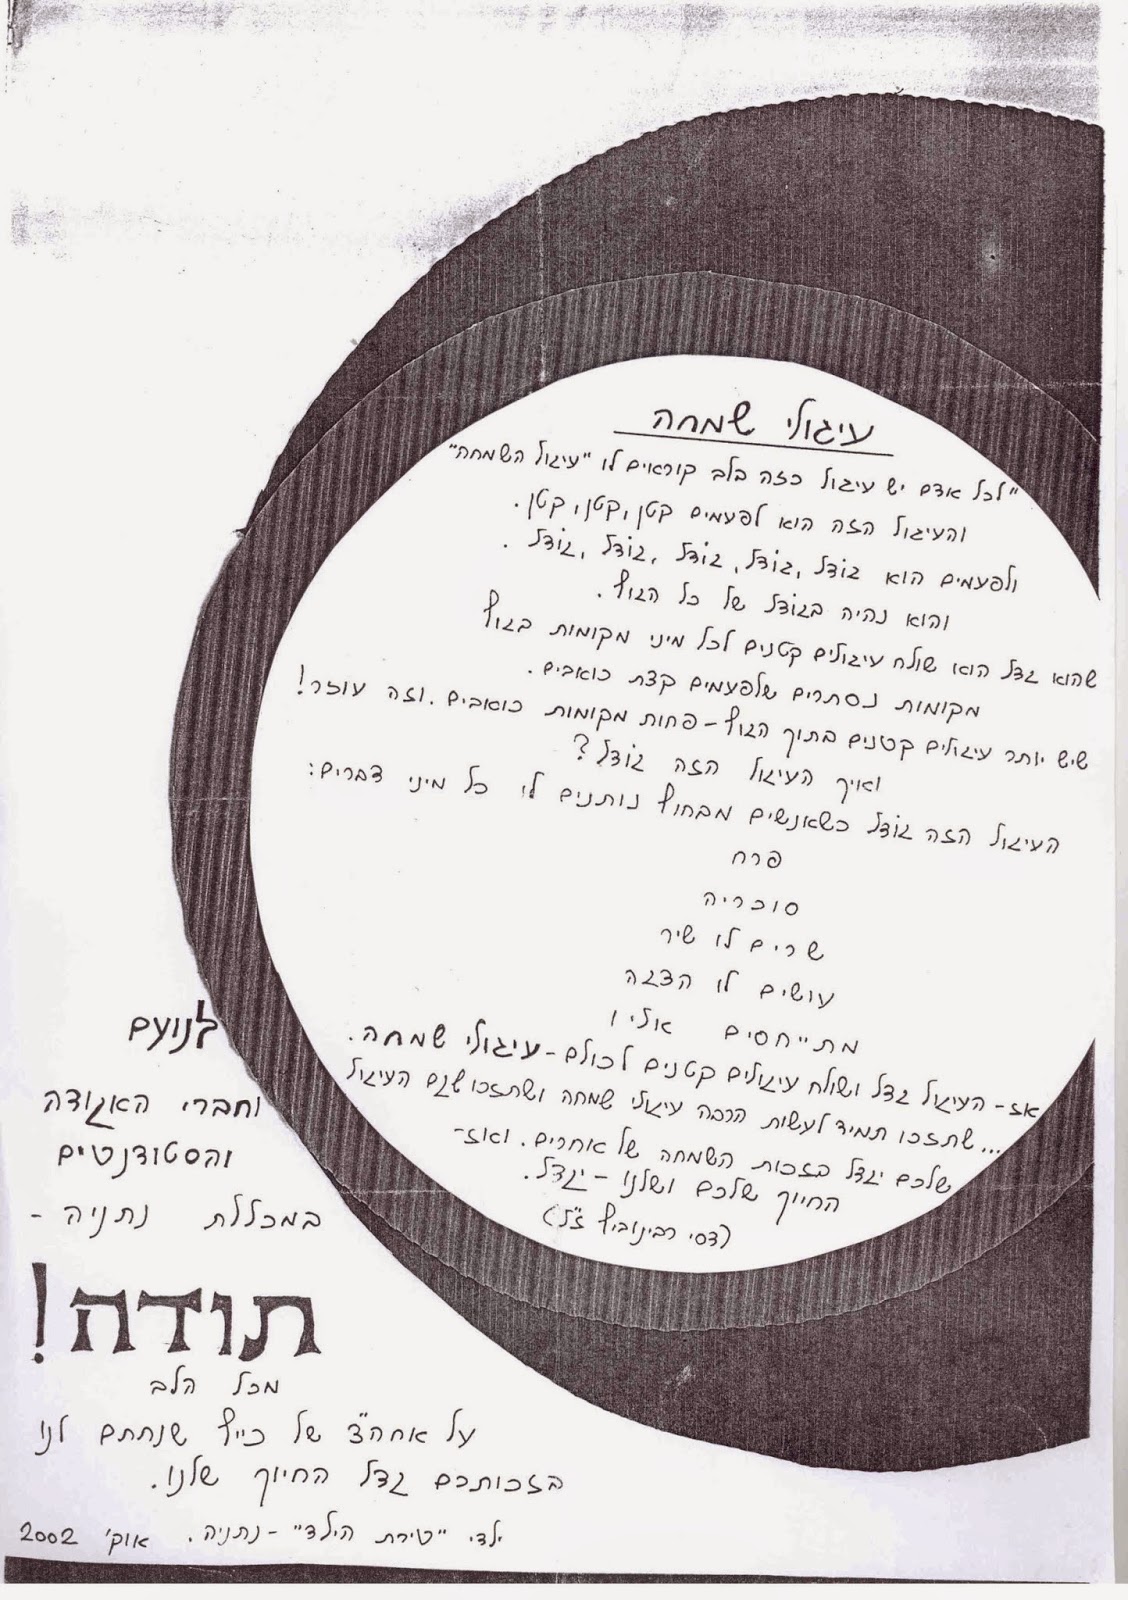 עיגולי שמחה
"לכל אדם יש עיגול כזה בלב קוראים לו "עיגול השמחה"
והעיגול הזה הוא לפעמים קטן, קטן, קטן.
ולפעמים הוא גודל, גודל, גודל, גודל, גודל.
והוא נהיה בגודל של כל הגוף.
שהוא גדל הוא שולח עיגולים קטנים לכל מיני מקומות בגוף
מקומות נסתרים שלפעמים קצת כואבים.
שיש יותר עיגולים קטנים בתוך הגוף - פחות מקומות כואבים. וזה עוזר!
ואיך העיגול הזה גודל?
העיגול הזה גודל כשאנשים מבחוץ נותנים לו כל מיני דברים:
פרח
סוכריה
שרים לו שיר
עושים לו הצגה
מתייחסים אליו
אז - העיגול גדל ושולח עיגולים קטנים לכולם - עיגולי שמחה.
...שתזכו תמיד לעשות הרבה עיגולי שמחה ושתזכו שגם העיגול
שלכם יגדל בזכות השמחה של אחרים. ואז -
החיוך שלכם ושלנו - יגדל.
(דסי רבינוביץ ז"ל)
לנועם
וחברי האגודה
והסטודנטים
במכללת נתניה -
תודה!
מכל הלב
על אחה"צ של כייף שנתתם לנו
בזכותכם גדל החיוך שלנו.
ילדי "טירת הילד" - נתניה. אוק' 2002